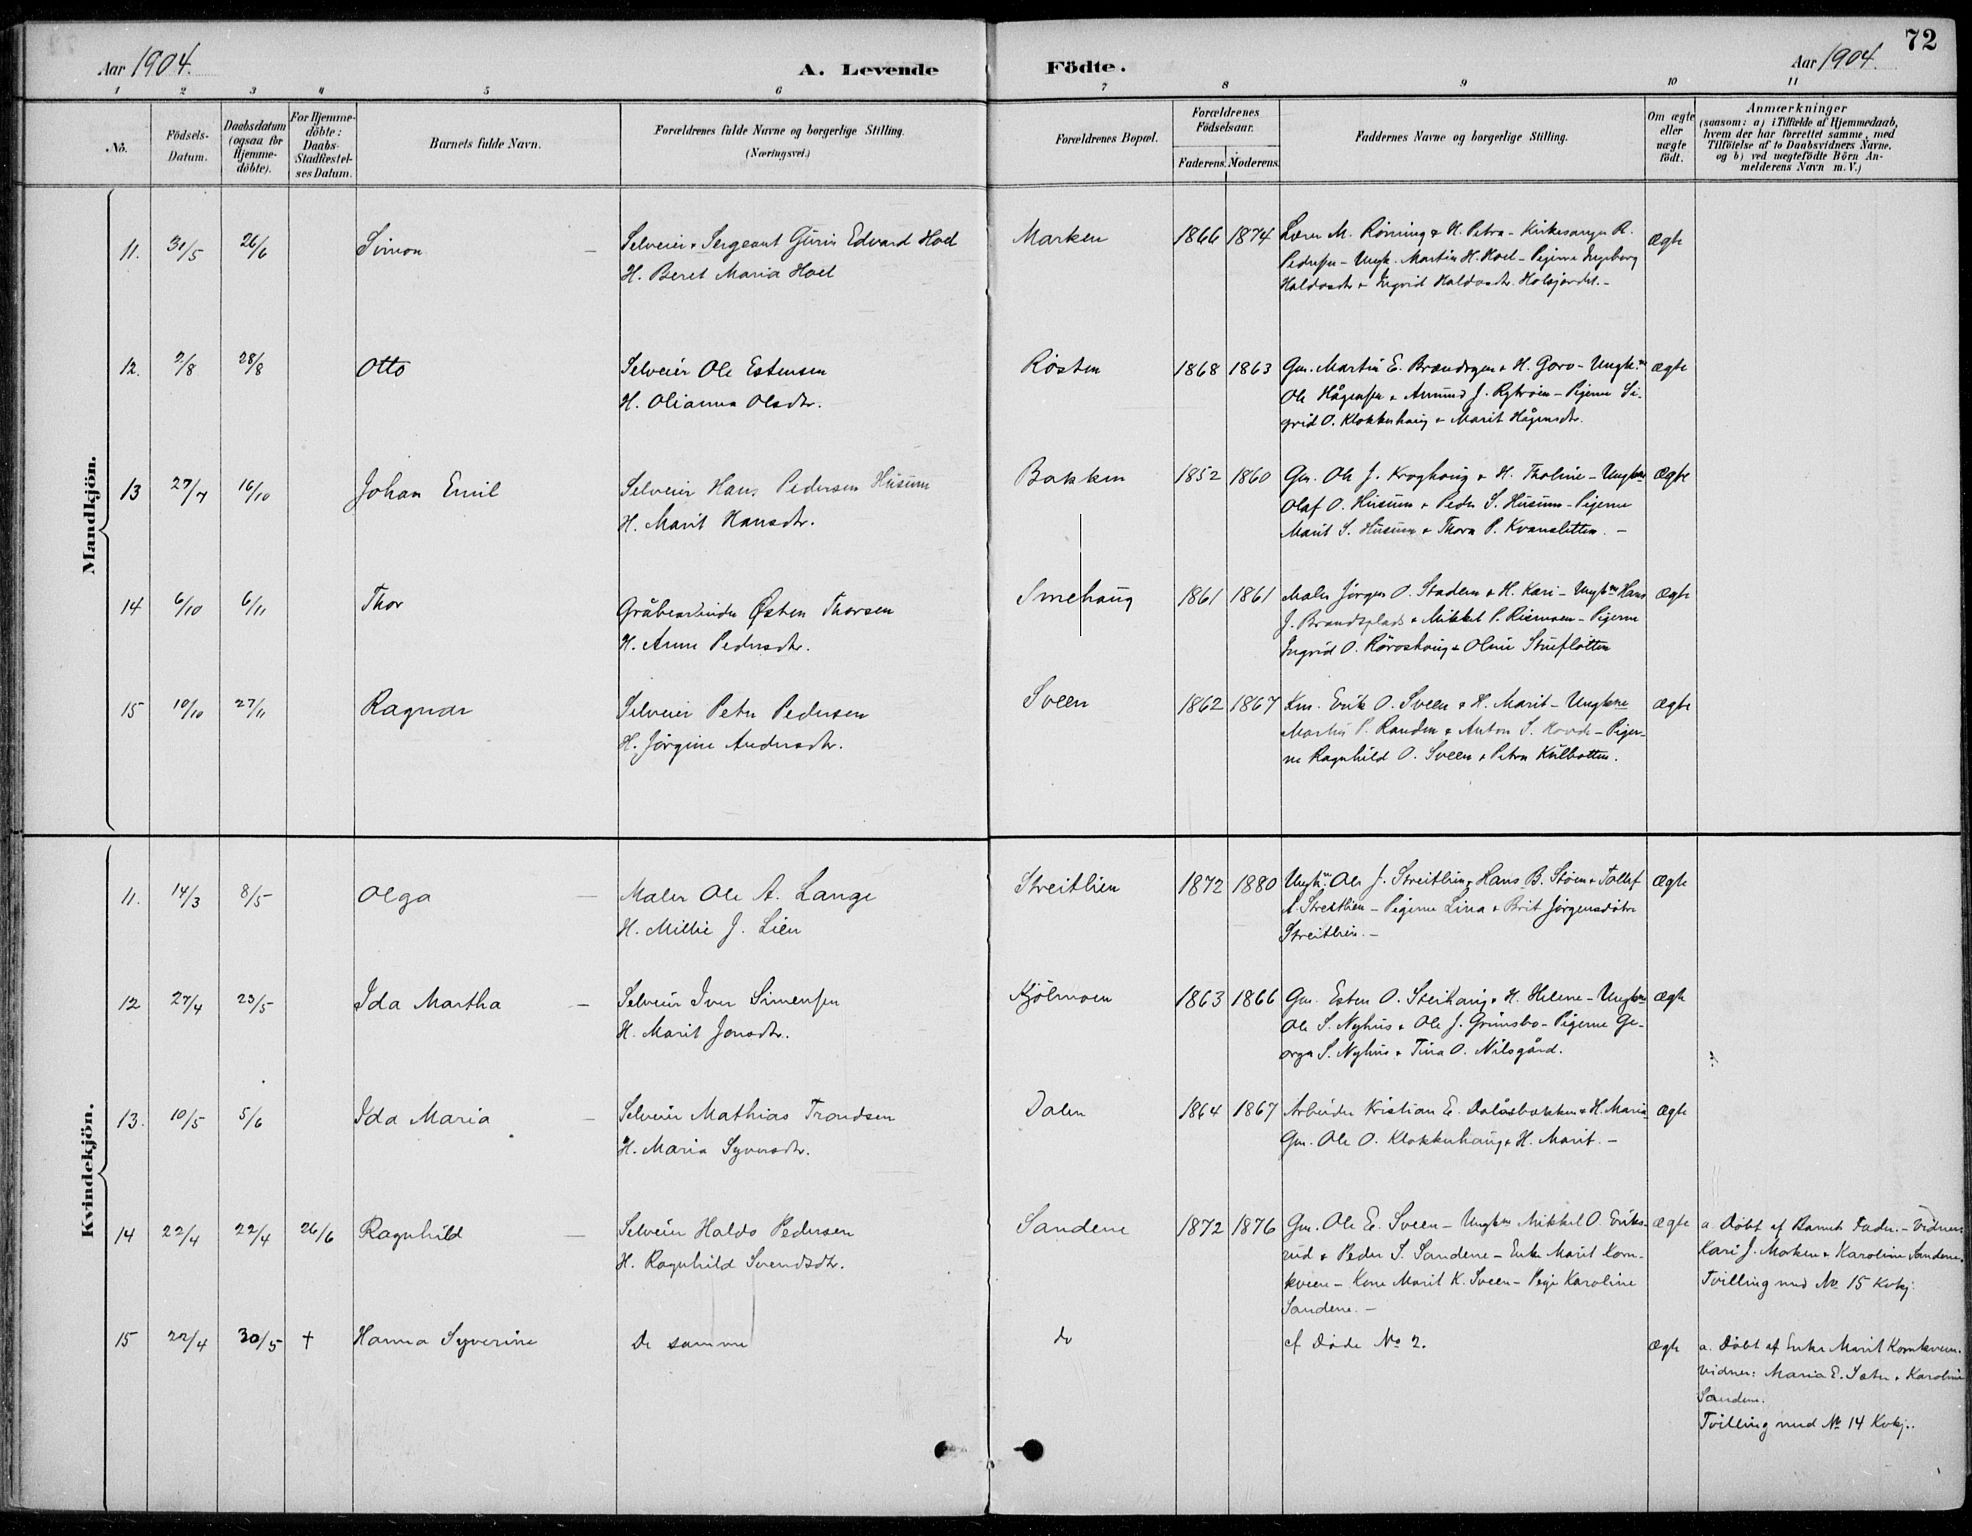 72
Aar 1904.
A. Levende Födte.
Aar 1904.
1 2 3 4 5 6 7 8 9 10 11
No.
Födsels-Datum.
Daabsdatum (ogsaa for Hjemme-döbte).
For Hjemme-döbte: Daabs-Stadfæstel-ses Datum.
Barnets fulde Navn.
Forældrenes fulde Navne og borgerlige Stilling.
(Næringsvei.)
Forældrenes Bopæl.
Forældrenes Födselsaar.
Faderens. Moderens.
Faddernes Navne og borgerlige Stilling.
Om ægte eller uægte födt.
Anmærkninger
(saasom: a) i Tilfælde af Hjemmedaab,
hvem der har forrettet samme, med
Tilföielse af to Daabsvidners Navne,
og b) ved uægtefödte Börn An-
melderens Navn m. V.)
Mandkjön.
11. 31/5 26/6 Simon – Selveier & Sergeant Guris Edvard Hoel Marken 1866 1874 Lærer M. Rönning & H. Petra – Kirkesanger R. Ægte
H. Beret Maria Hoel Pedersen – Ungk. Martin H. Hoel – Pigerne Ingeborg
Haldosdtr & Ingrid Haldosdtr. Holsjordet. –
12. 2/8 28/8 Otto Selveier Ole Estensen Røsten 1868 1863 Gm. Martin E. Brandvgen & H. Goro – Ungk.ne ægte
H. Olianna Olsdtr. Ole Hågensen & Amund J. Rytrøen – Pigerne Si-
grid O. Klokkerhaug & Marit Hågensdtr.
13 27/7 16/10 Johan Emil Selveier Hans Pedersen Husum Bakken 1852 1860 Gm. Ole J. Kroghaug & H. Tholine – Ungkne Ægte
H. Marit Hansdtr. Olaf O. Husum & Peder S. Husum – Pigerne
Marit S. Husum & Thora P. Kvansletten. –
14 6/10 6/11 Thor Gråbearbeider Østen Thorsen Smehaug 1861 1861 Maler Jörgen O. Staden & H. Kari – Ungkne Hans Ægte
H. Anne Pedersdtr. J. Brandsplads & Mikkel P. Rismoen – Pigerne
Ingrid O. Röroshaug & Oline Stuefloten
15 10/10 27/11 Ragnar Selveier Peter Pedersen Sveen 1862 1867 Km. Erik O. Sveen & H. Marit – Ungkne Ægte
H. Jörgine Andersdtr. Martin P. Randen & Anton S. Hovde – Piger-
ne Ragnhild O. Sveen & Petra Kulbotten.
Kvindekjön.
11. 14/3 8/5 Olga – Maler Ole A. Lange Streitlien 1872 1880 Ungk.ne Ole J. Streitlien, Hans B. Stöen & Tollef Ægte
H. Millie J. Lien A. Streitlien – Pigerne Lina & Brit Jørgensdötre
Streitlien. –
12 27/4 23/5 Ida Martha – Selveier Iver Simensen Kjölmoen 1863 1866 Gm. Esten O. Steihaug & H. Helene – Ungkne Ægte
H. Marit Jonsdtr. Ole S. Nyhus & Ole J. Grimsbo – Pigerne Ge-
orga S. Nyhus & Tina O. Nilsgård.
13. 10/5 5/6 Ida Maria – Selveier Mathias Trondsen Dalen 1864 1867 Arbeider Kristian E. Dalåsbakken & H. Maria Ægte
H. Maria Syversdtr. Gm. Ole O. Klokkerhaug & H. Marit. –
14 22/4 22/4 26/6 Ragnhild – Selveier Haldo Pedersen Sandene 1872 1876 Gm. Ole E. Sveen – Ungkne Mikkel O. Eriks- Ægte a. Døbt af Barnets Fader. – Vidner:
H. Ragnhild Svendsdtr. rud & Peder S. Sandene – Enke Marit Korn- Kari J. Moken & Karoline Sandene.
kveen – Kone Marit K. Sveen – Pige Karoline Tvilling med No 15 Kvkj.
Sandene. –
15 22/4 30/5 † Hanna Syverine De samme do cf Døde No 2. Ægte a. Døbt af Enke Marit Kornkveen.
Vidner: Maria E. Sæter & Karoline
Sandene.
Tvilling med No 14 Kvkj..